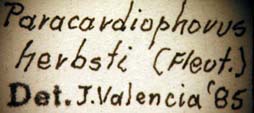 Paracardiophorus
herbsti (Fleut.)
Det. J. Valencia '85